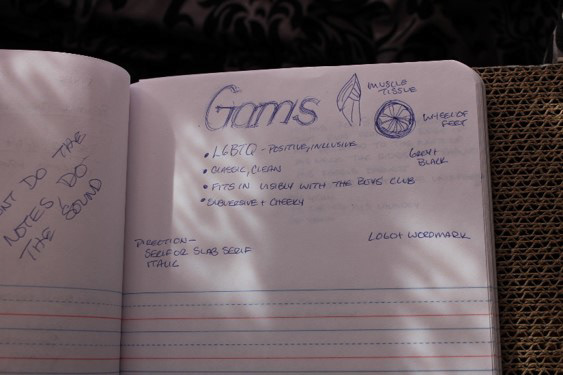 NT DO THE
NOTES DO
THE SOUND
Gams
MUSCLE
TISSUE
WHEEL OF
FEET
• LGBTQ - POSITIVE, INCLUSIVE
GREY +
BLACK
• CLASSIC, CLEAN
• FITS IN VISIBLY WITH THE BOYS' CLUB
• SUBVERSIVE + CHEEKY
DIRECTION -
SERIF OR SLAB SERIF
ITALIC
LOGO + WORDMARK